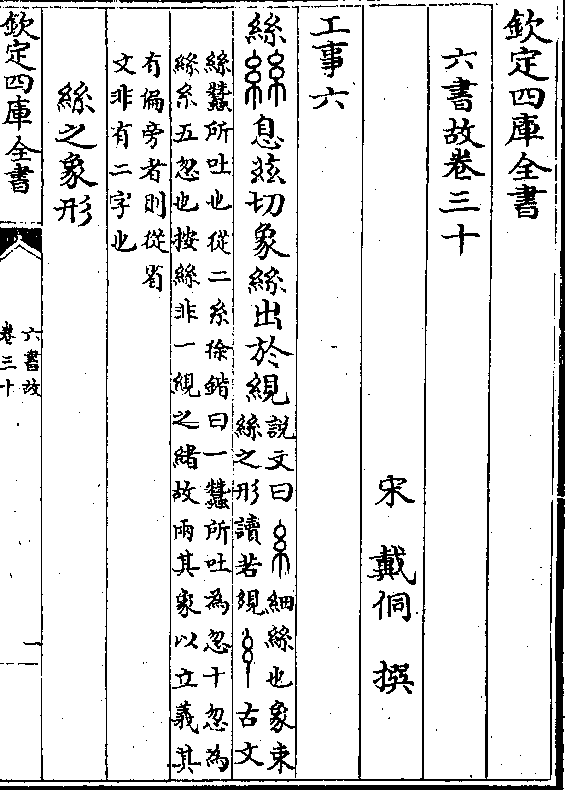 欽定四庫全書
六書故卷三十
宋 戴侗 撰
工事六
絲 息茲切象絲出於絸
說文曰 細絲也象束
絲之形讀若覛 古文
絲蠶所吐也從二糸徐鍇曰一蠶所吐為忽十忽為
絲糸五忽也按絲非一絸之緒故兩其象以立義其
有偏旁者則從省
文非有二字也
絲之象形
欽定四庫全書
六書故
卷三十
一